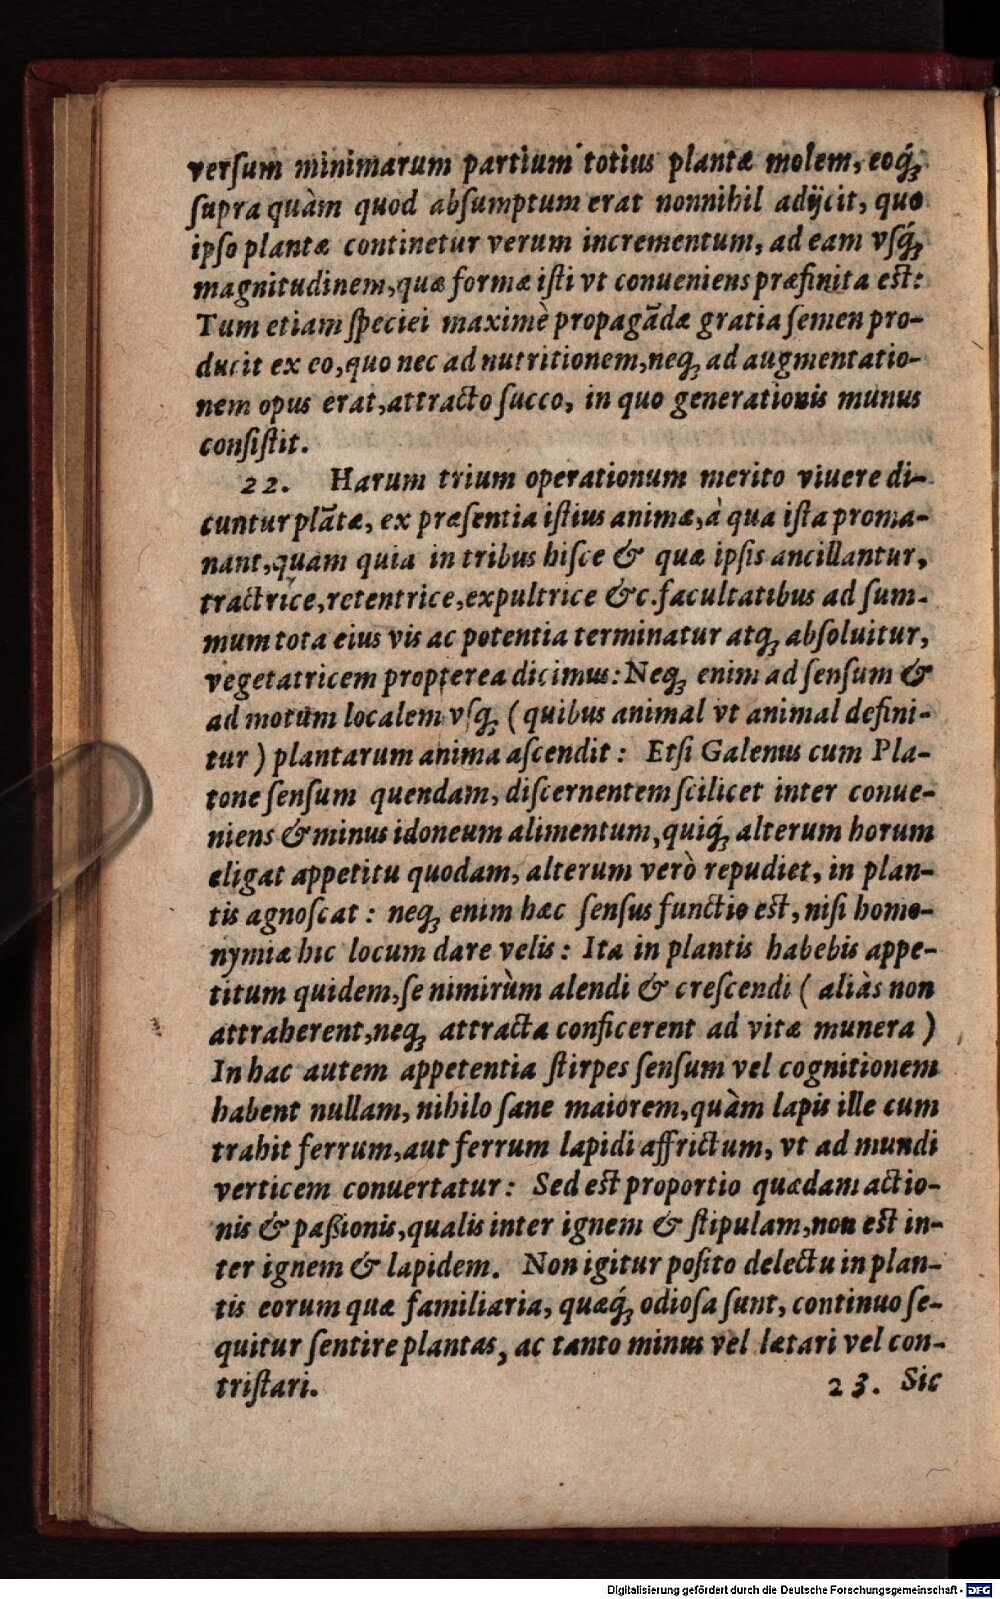 verſum minimarum partium totius plantæ molem, eoq́;
ſupra quàm quod abſumptum erat nonnihil adijcit, quo
ipſo plantæ continetur verum incrementum, ad eam vſq́;
magnitudinem, quæ formæ iſti vt conueniens præfinita eſt:
Tum etiam ſpeciei maximè propagādæ gratia ſemen pro-
ducit ex eo, quo nec ad nutritionem, neq; ad augmentatio-
nem opus erat, attracto ſucco, in quo generationis munus
conſiſtit.
22. Harum trium operationum merito viuere di-
cuntur plātæ, ex præſentia iſtius animæ, à qua iſta proma-
nant, quam quia in tribus hiſce & quæ ipſis ancillantur,
tractrice, retentrice, expultrice &c. facultatibus ad ſum-
mum tota eius vis ac potentia terminatur atq; abſoluitur,
vegetatricem propterea dicimus: Neq; enim ad ſenſum &
ad motum localem vſq; (quibus animal vt animal defini-
tur) plantarum anima aſcendit: Etſi Galenus cum Pla-
tone ſenſum quendam, diſcernentem ſcilicet inter conue-
niens & minus idoneum alimentum, quiq́; alterum horum
eligat appetitu quodam, alterum verò repudiet, in plan-
tis agnoſcat: neq; enim hæc ſenſus functio eſt, niſi homo-
nymiæ hic locum dare velis: Ita in plantis habebis appe-
titum quidem, ſe nimirùm alendi & creſcendi (aliàs non
attraherent, neq; attracta conficerent ad vitæ munera)
In hac autem appetentia ſtirpes ſenſum vel cognitionem
habent nullam, nihilo ſane maiorem, quàm lapis ille cum
trahit ferrum, aut ferrum lapidi affrictum, vt ad mundi
verticem conuertatur: Sed eſt proportio quædam actio-
nis & paßionis, qualis inter ignem & ſtipulam, non eſt in-
ter ignem & lapidem. Non igitur poſito delectu in plan-
tis eorum quæ familiaria, quæq́; odioſa ſunt, continuo ſe-
quitur ſentire plantas, ac tanto minus vel lætari vel con-
triſtari.
23. Sic
Digitalisierung gefördert durch die Deutsche Forschungsgemeinschaft - DFG